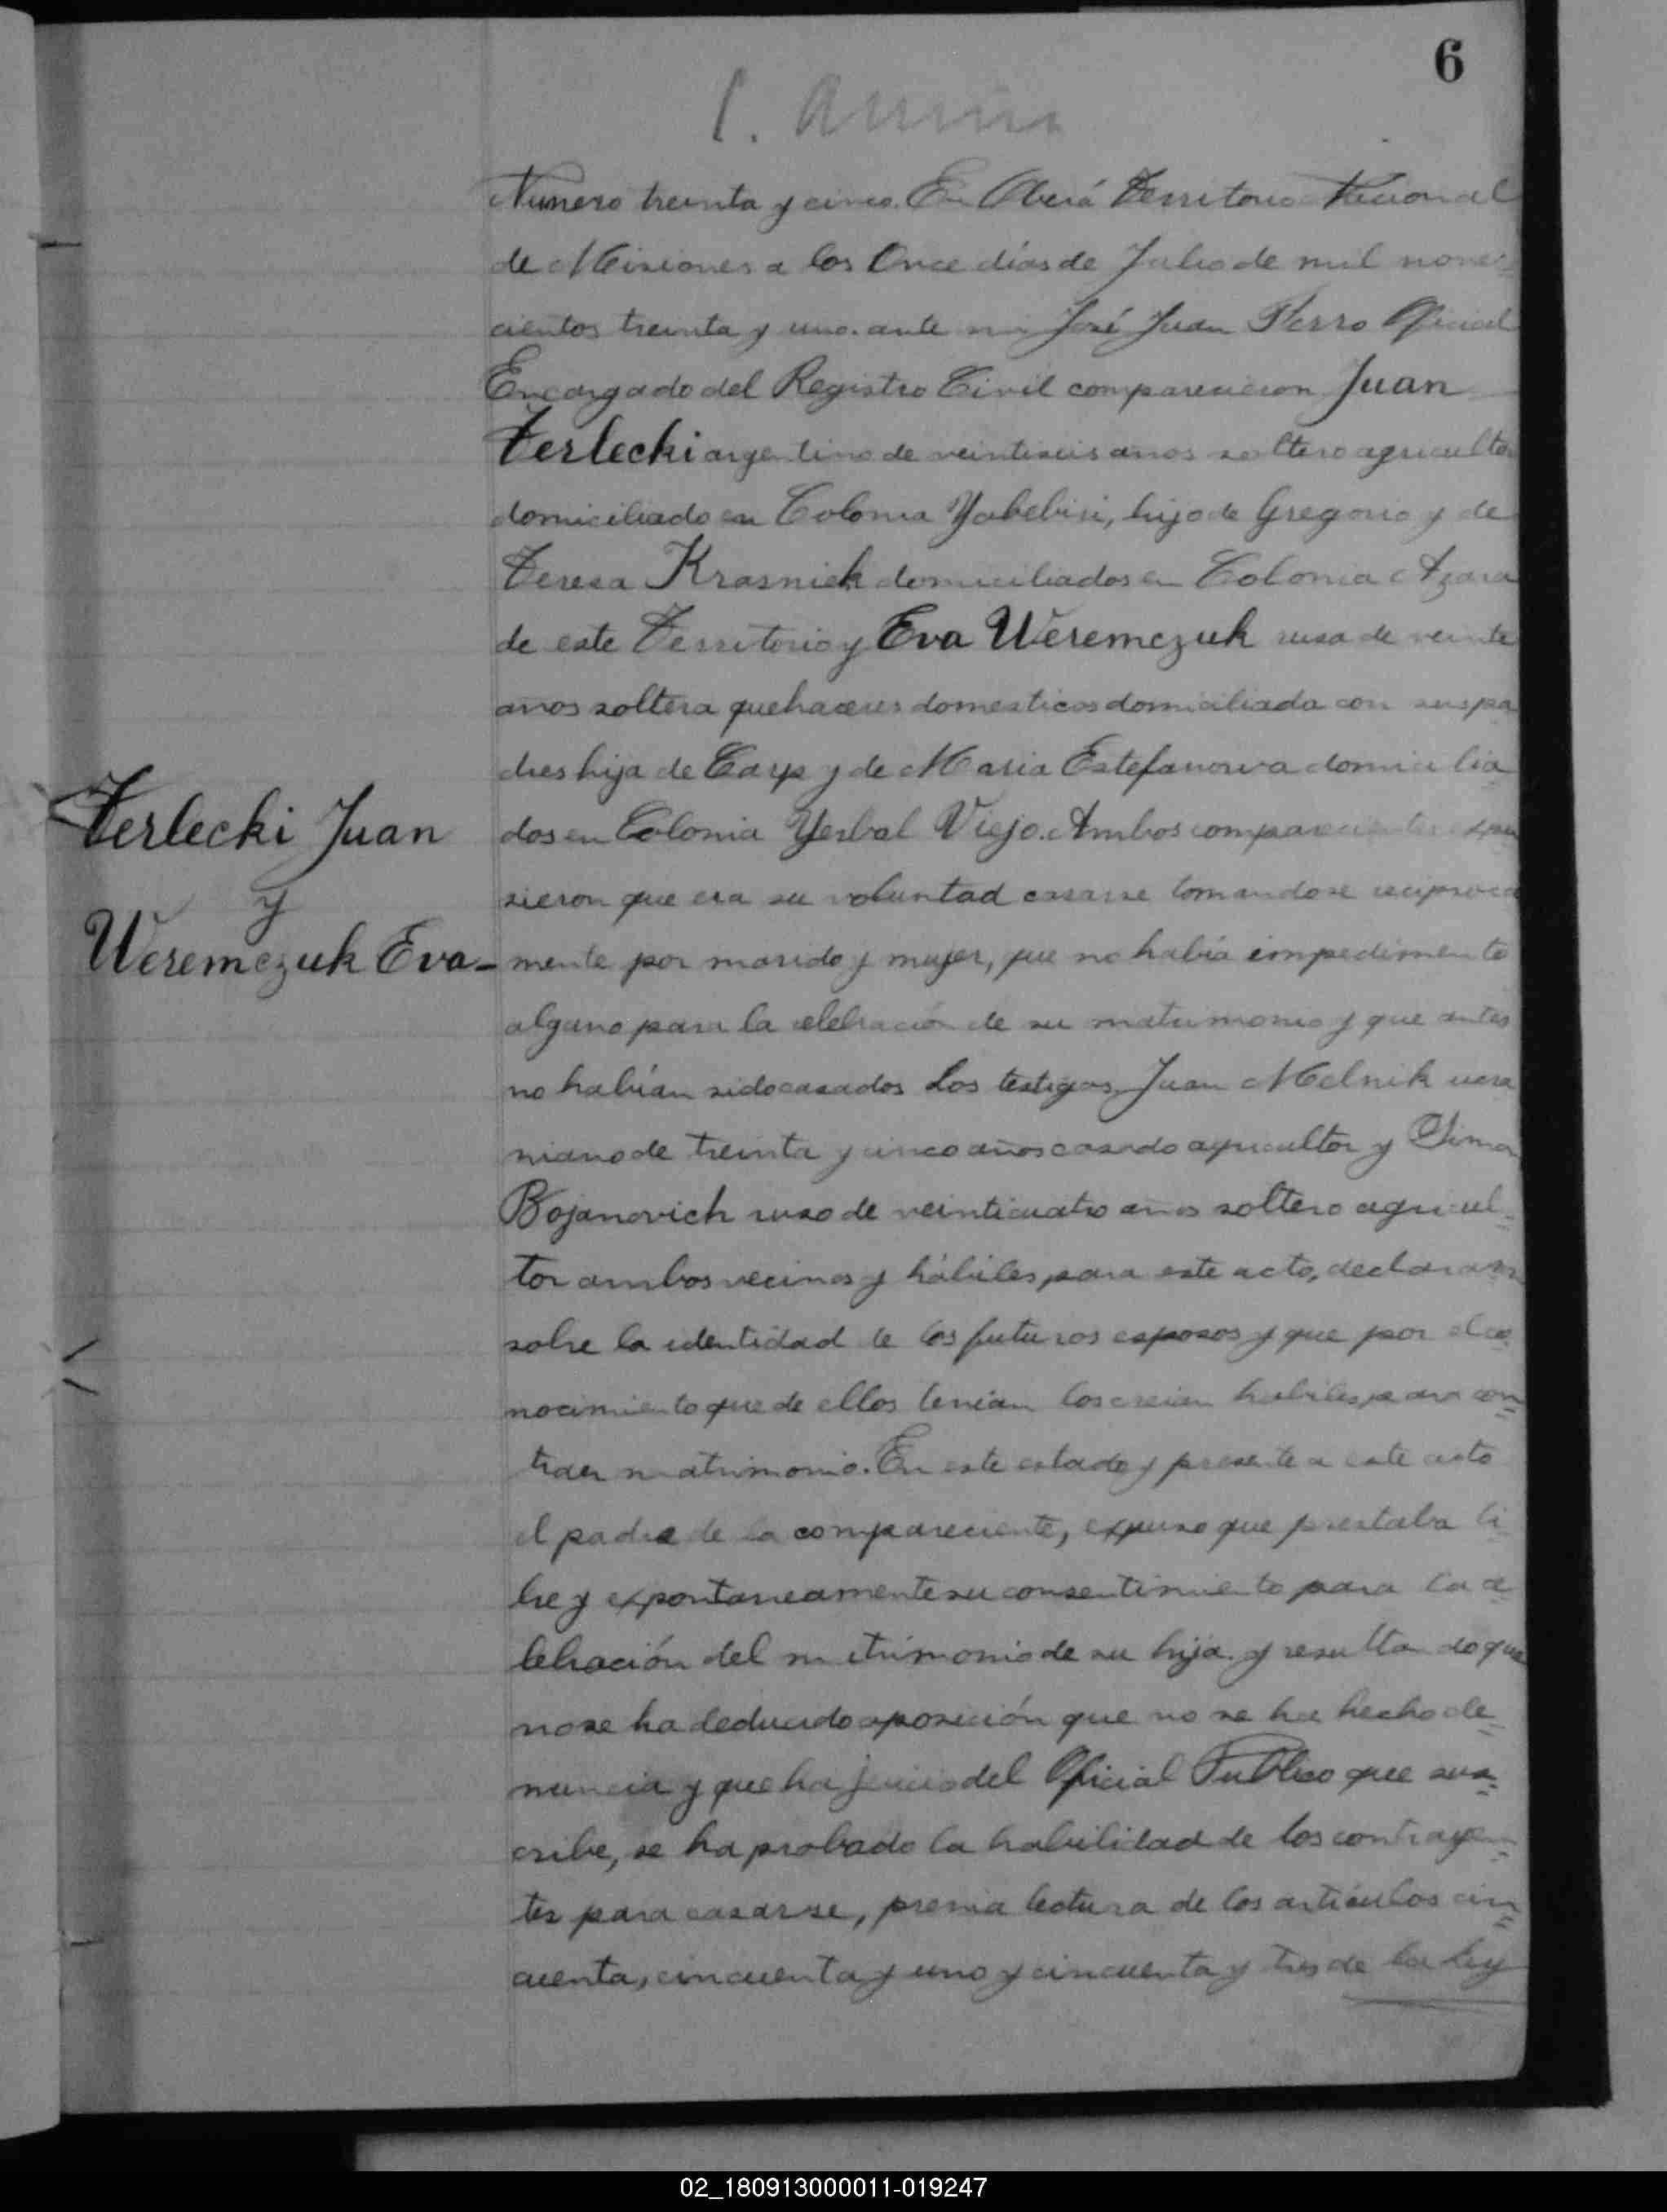 6
Numero treinta y cinco. En Oberá Territorio Nacional
de Misiones a los Once días de Julio de mil nove=
cientos treinta y uno. ante mi José Juan Ferro Oficial
Encargado del Registro Civil comparecieron Juan
Terlecki argentino de veintiseis años soltero agricultor
domiciliado en Colonia Yabebiri, hijo de Gregorio y de
Teresa Krasniek domiciliados en Colonia Azara
de este Territorio y Eva Weremczuk rusa de veinte
años soltera quehaceres domesticos domiciliada con sus pa
dres hija de Carp y de Maria Estefanowa domicilia
Terlecki Juan
y
Weremczuk Eva-
dos en Colonia Yerbal Viejo. Ambos comparecientes expu
sieron que era su voluntad casarse tomandose reciproca
mente por marido y mujer, que no había impedimento
alguno para la celebración de su matrimonio y que antes
no habían sido casados Los testigos, Juan Melnik ucra
niano de treinta y cinco años casado agricultor y Simon
Bojanovich ruso de veinticuatro años soltero agricul=
tor ambos vecinos y hábiles, para este acto, declararon
sobre la identidad de los futuros esposos y que por el co
nocimiento que de ellos tenían los creian habiles para con=
traer matrimonio. En este estado y presente a este acto
el padre de la compareciente, expuso que prestaba li
bre y expontaneamente su consentimiento para la ce
lebración del matrimonio de su hija. y resultando que
no se ha deducido oposición que no se ha hecho de=
nuncia y que ha juicio del Oficial Publico que sus=
cribe, se ha probado la habilidad de los contrayen=
tes para casarse, previa lectura de los artículos cin=
cuenta, cincuenta y uno y cincuenta y tres de la Ley
02_180913000011-019247